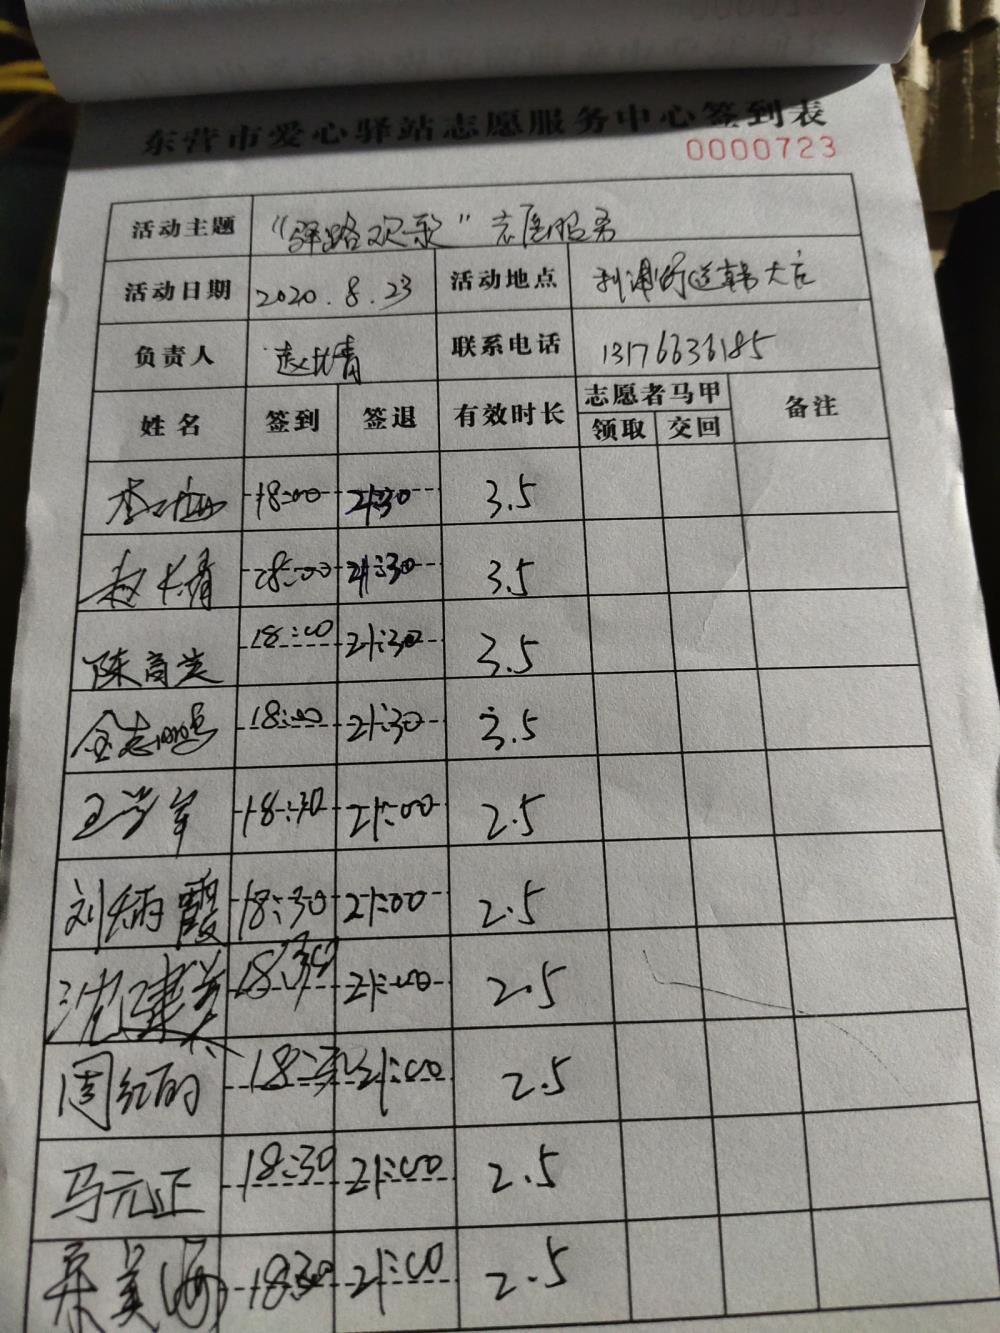 东营市爱心驿站志愿服务中心签到表
0000723
活动主题 “驿路欢歌”志愿服务
活动日期 2020.8.23 活动地点 利浦街道韩大庄
负责人 赵长青 联系电话 13176636185
姓名 签到 签退 有效时长 志愿者马甲 备注
领取 交回
18:00 21:30 3.5
赵长青 18:00 21:30 3.5
陈商英 18:00 21:30 3.5
金志鹏 18:00 21:30 3.5
王学军 18:30 21:00 2.5
刘炳霞 18:30 21:00 2.5
沈建美 18:30 21:00 2.5
周红雨 18:30 21:00 2.5
马元正 18:30 21:00 2.5
美海 18:30 21:00 2.5